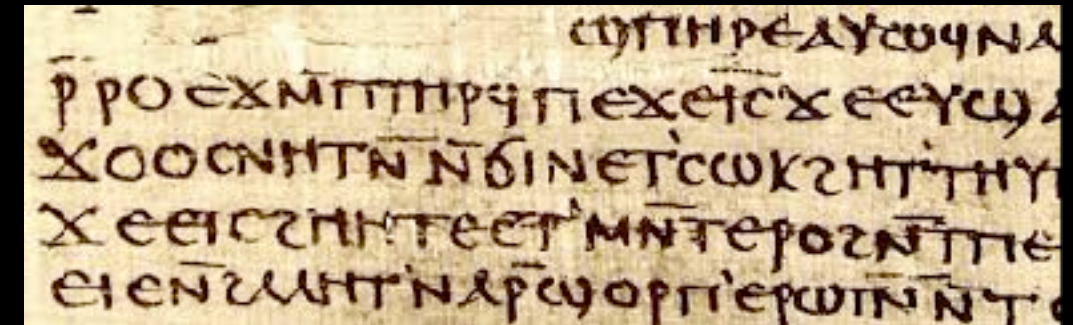 ϣⲡⲏⲣⲉⲁⲩⲱϥⲛⲁ
ⲣ̄ⲣⲟⲉϫⲙ̄ⲡⲧⲏⲣϥⲡⲉϫⲉⲓ̅ⲥ̅ϫⲉⲉⲩϣⲁ
ϫⲟⲟⲥⲛⲏⲧⲛ̄ⲛ̄ϭⲓⲛⲉⲧ'ⲥⲱⲕϩⲏⲧ'ⲧⲏⲩ
ϫⲉⲉⲓⲥϩⲏⲏⲧⲉⲉⲧ'ⲙⲛ̄ⲧⲉⲣⲟϩⲛ̄ⲧⲡⲉ
ⲉⲓⲉⲛ̄ϩⲁⲗⲏⲧ'ⲛⲁⲣ̄ϣⲟⲣⲡ'ⲉⲣⲱⲧⲛ̄ⲛ̄ⲧ